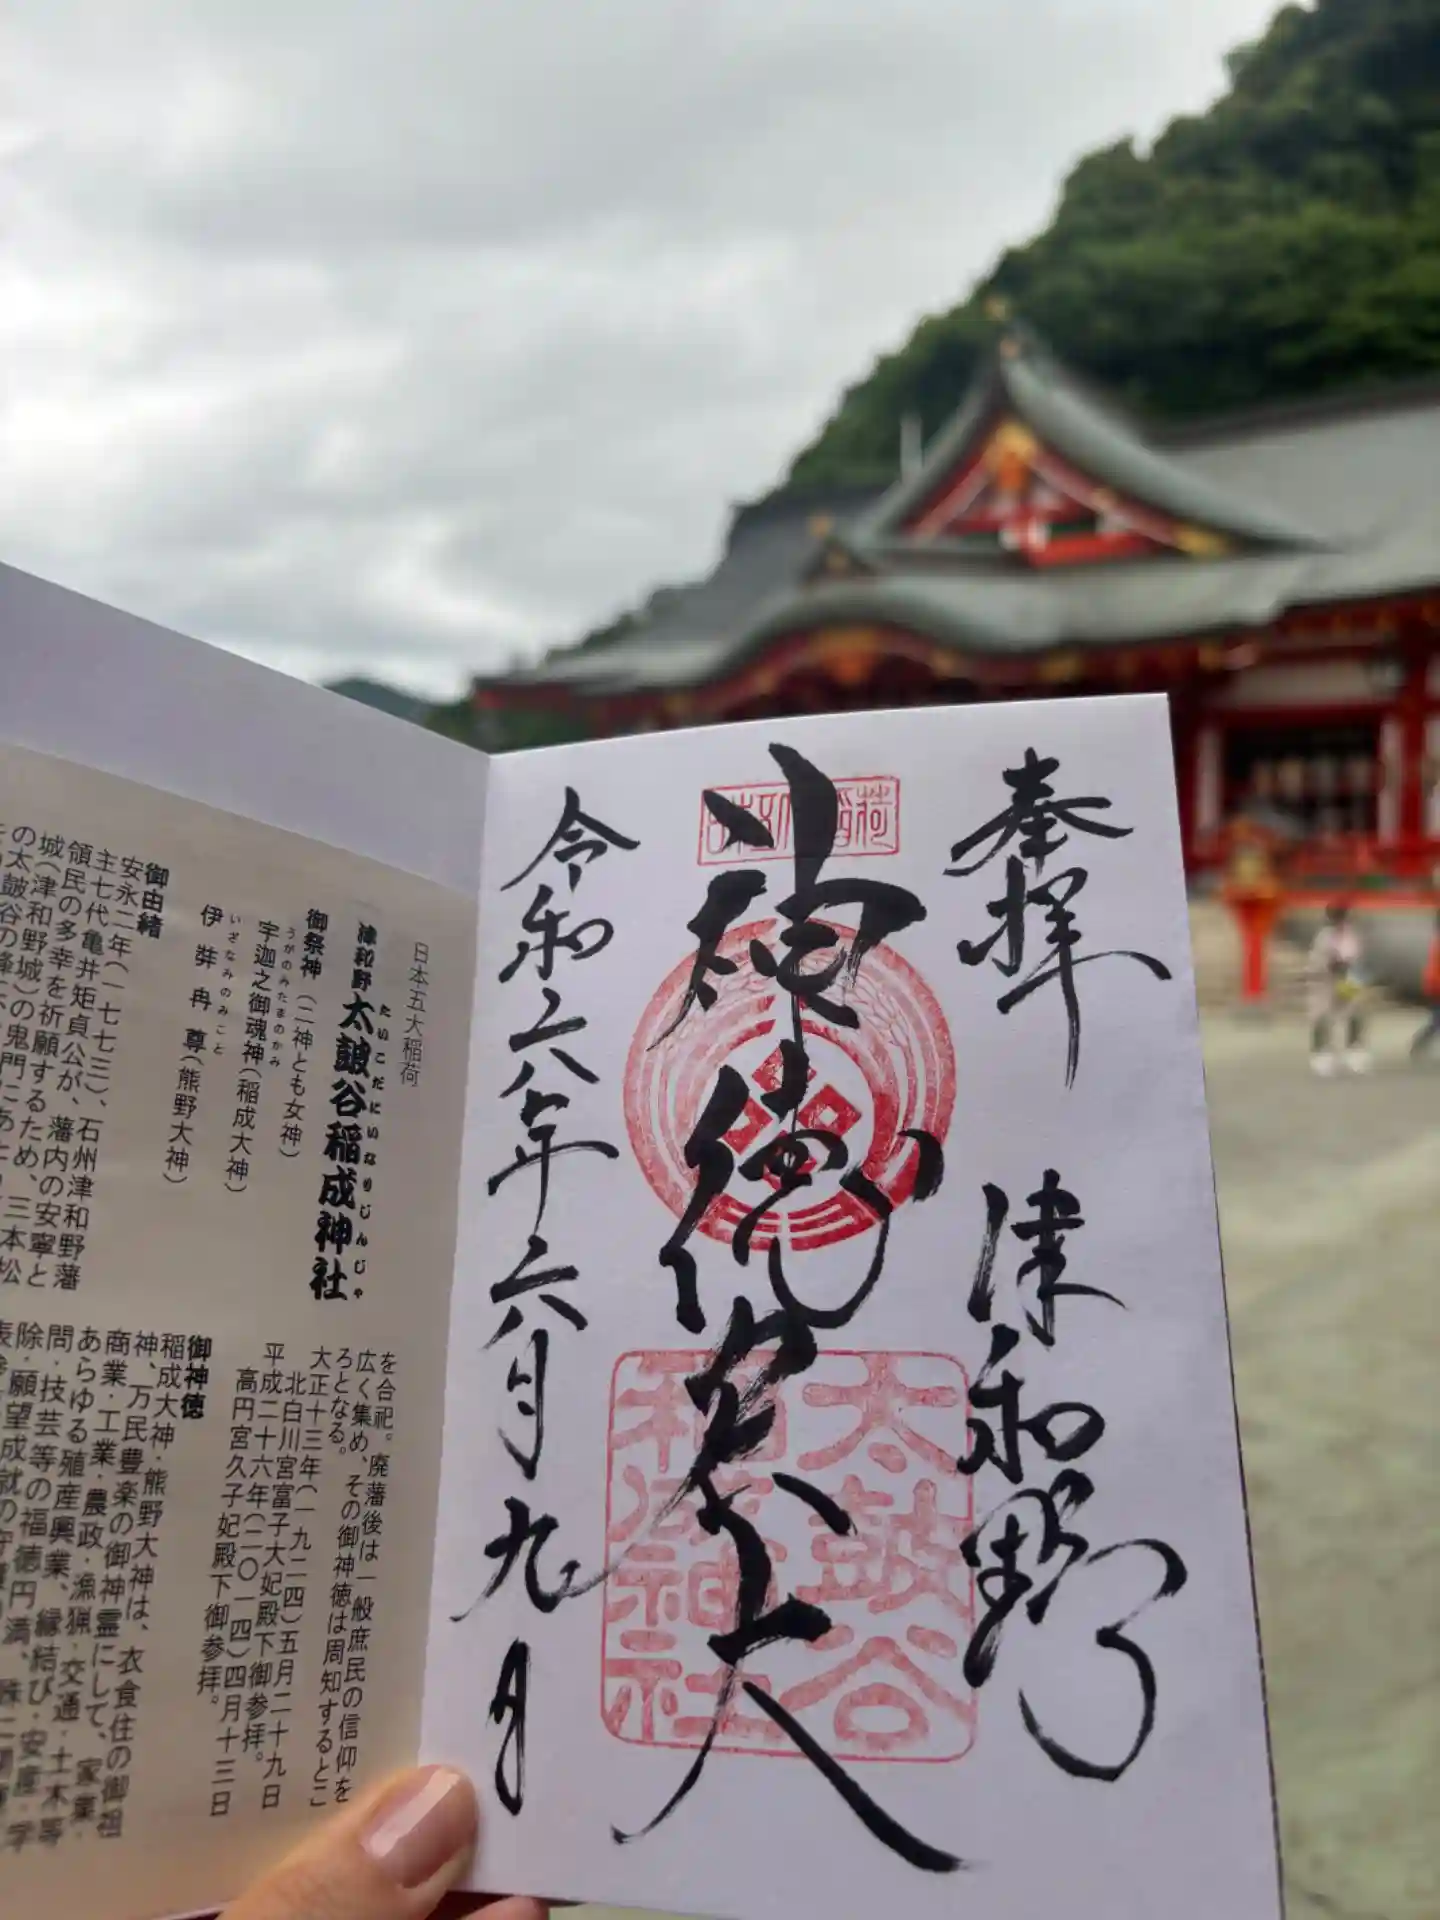 奉拝 津和野
神徳宏大
令和六年六月九日
太皷谷
稲成神社
日本五大稲荷
津和野 太皷谷稲成神社
たいこだにいなりじんじゃ
御祭神 (二神とも女神)
うがのみたまのかみ
宇迦之御魂神(稲成大神)
いざなみのみこと
伊弉冉尊(熊野大神)
御由緒
安永二年(一七七三)、石州津和野藩
主七代亀井矩貞公が、藩内の安寧と
領民の多幸を祈願するため、三本松
城(津和野城)の鬼門にあたり
の太皷谷の峰に
を合祀。廃藩後は一般庶民の信仰を
広く集め、その御神徳は周知するとこ
ろとなる。
大正十三年(一九二四)五月二十九日
北白川宮富子大妃殿下御参拝。
平成二十六年(二〇一四)四月十三日
高円宮久子妃殿下御参拝。
御神徳
稲成大神・熊野大神は、衣食住の御祖
神、万民豊楽の御神霊にして、家業・
商業・工業・農政・漁猟・交通・土木等
あらゆる殖産興業、縁結び・安産・学
問・技芸等の福徳円満、
除・願望成就の守護